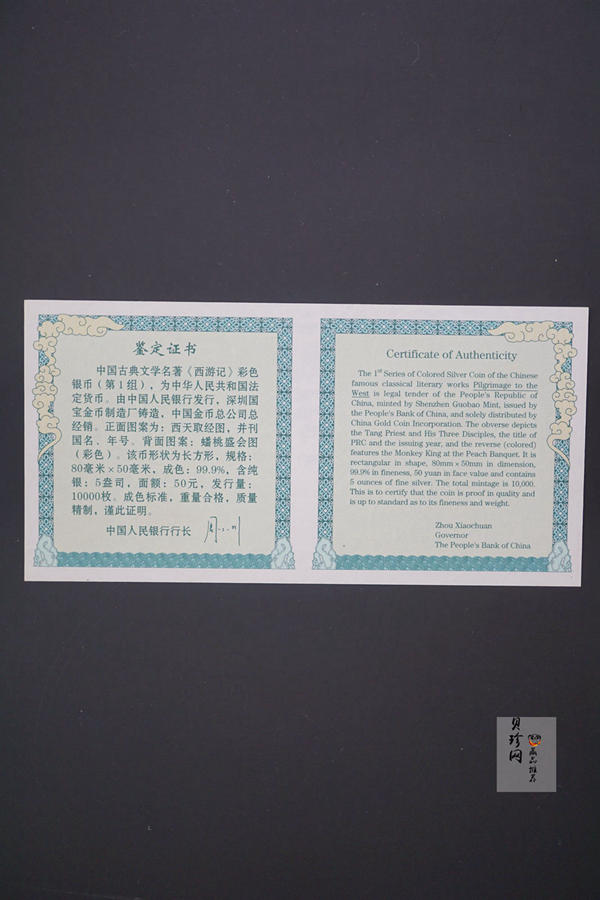 鉴定证书
中国古典文学名著《西游记》彩色
银币（第1组），为中华人民共和国法
定货币。由中国人民银行发行，深圳国
宝金币制造厂铸造，中国金币总公司总
经销。正面图案为：西天取经图，并刊
国名、年号。背面图案：蟠桃盛会图
（彩色）。该币形状为长方形，规格：
80毫米×50毫米，成色：99.9%，含纯
银：5盎司，面额：50元，发行量：
10000枚。成色标准，重量合格，质量
精制，谨此证明。
中国人民银行行长
Certificate of Authenticity
The 1st Series of Colored Silver Coin of the Chinese
famous classical literary works Pilgrimage to the
West is legal tender of the People's Republic of
China, minted by Shenzhen Guobao Mint, issued by
the People's Bank of China, and solely distributed by
China Gold Coin Incorporation. The obverse depicts
the Tang Priest and His Three Disciples, the title of
PRC and the issuing year, and the reverse (colored)
features the Monkey King at the Peach Banquet. It is
rectangular in shape, 80mm×50mm in dimension,
99.9% in fineness, 50 yuan in face value and contains
5 ounces of fine silver. The total mintage is 10,000.
This is to certify that the coin is proof in quality and
is up to standard as to its fineness and weight.
Zhou Xiaochuan
Governor
The People's Bank of China
贝珍网
藏品推荐